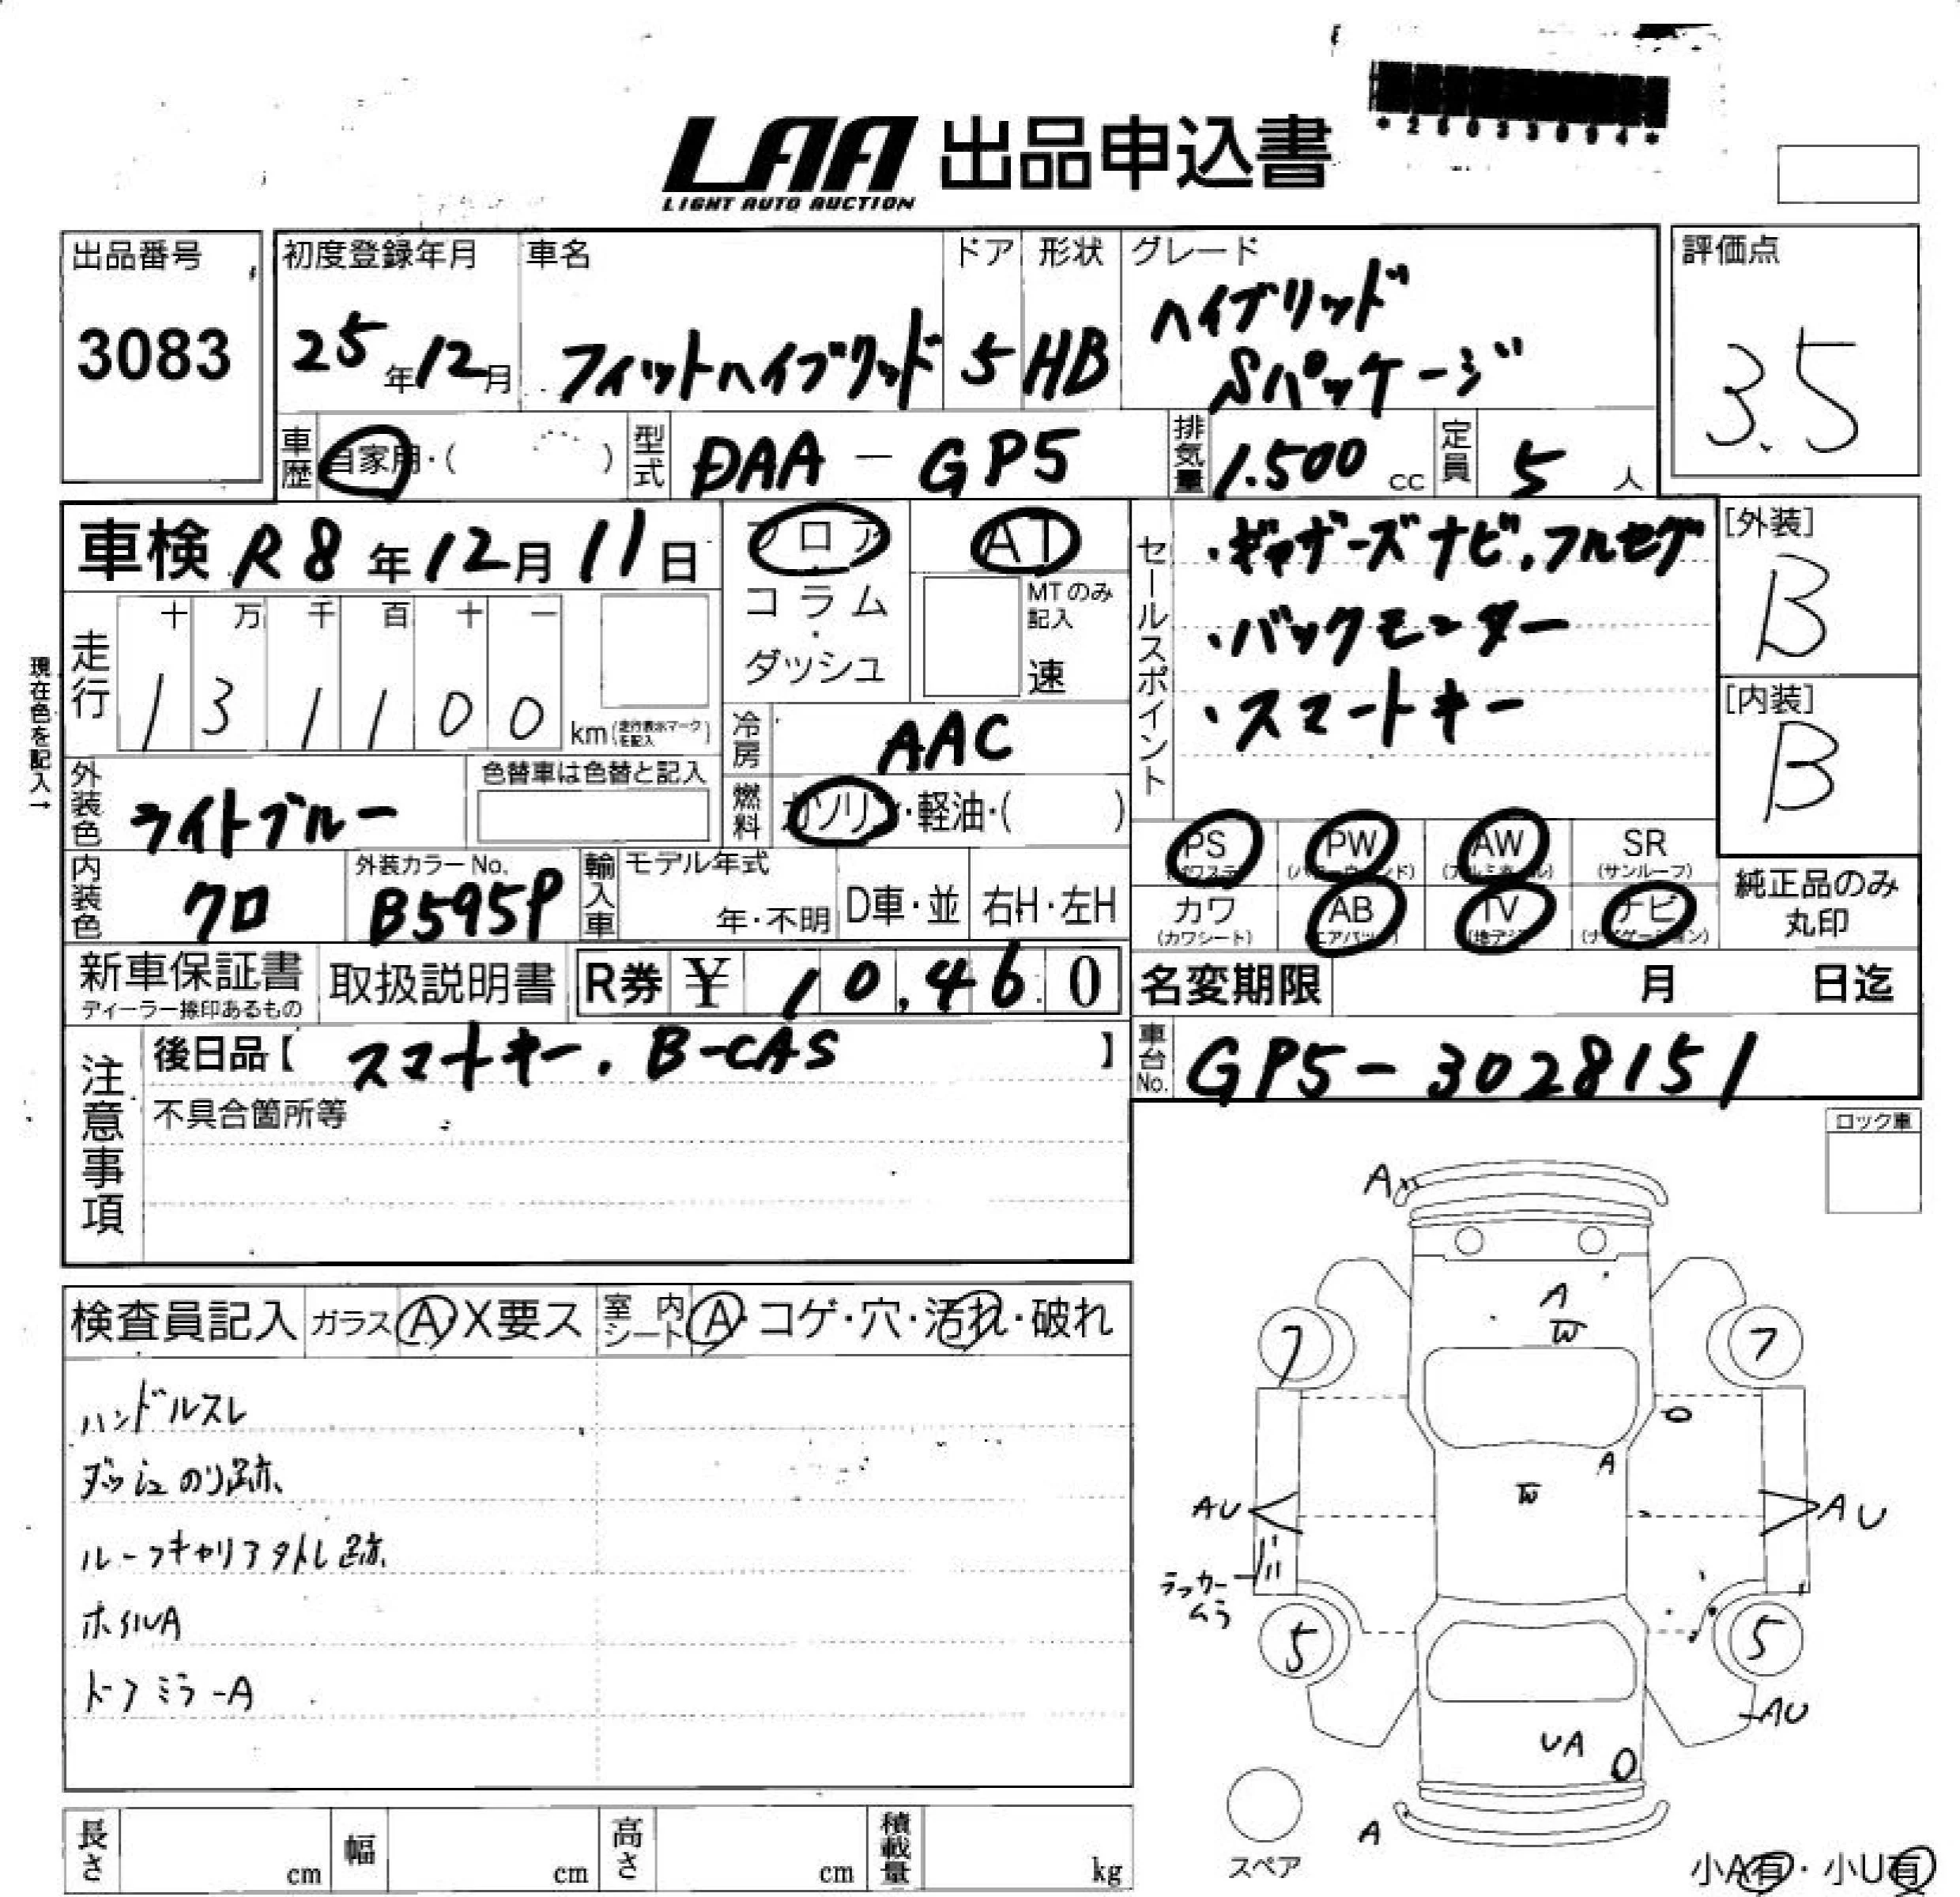 LAA 出品申込書
LIGHT AUTO AUCTION
出品番号
3083
初度登録年月
25年12月
車名
フィットハイブリッド
ドア
5
形状
HB
グレード
ハイブリッド
Sパッケージ
評価点
3.5
車歴 自家用・( )
型式 DAA-GP5
排気量 1.500 cc
定員 5 人
車検 R8年12月11日
フロア
コラム
・
ダッシュ
AT
MTのみ記入
速
セールスポイント
・ギャザーズナビ,フルセグ
・バックモニター
・スマートキー
[外装]
B
[内装]
B
現在色を記入→
走行
十 万 千 百 十 一
1 3 1 1 0 0 km(走行表示マークを記入)
冷房 AAC
外装色 ライトブルー
色替車は色替と記入
燃料 ガソリン・軽油・( )
PS (パワステ)
PW (パワーウィンド)
AW (アルミホイル)
SR (サンルーフ)
カワ (カワシート)
AB (エアバック)
TV (地デジ)
ナビ (ナビゲーション)
純正品のみ
丸印
内装色 クロ
外装カラーNo.
B595P
輸入車 モデル年式
年・不明
D車・並
右H・左H
新車保証書
ディーラー捺印あるもの
取扱説明書
R券 ¥ 10,460
名変期限 月 日迄
注意事項
後日品【 スマートキー. B-CAS 】
不具合箇所等
車台No. GP5-3028151
ロック車
検査員記入 ガラス A X要ス 室内シート A・コゲ・穴・汚れ・破れ
ハンドルスレ
ダッシュのり跡.
ルーフキャリアタトし跡.
ホイルA
ドアミラーA
A
A
W
7
7
A
W
AU
AU
ラッカー
ムラ
5
5
AU
UA
A
スペア
小A有・小U有
長さ cm
幅 cm
高さ cm
積載量 kg